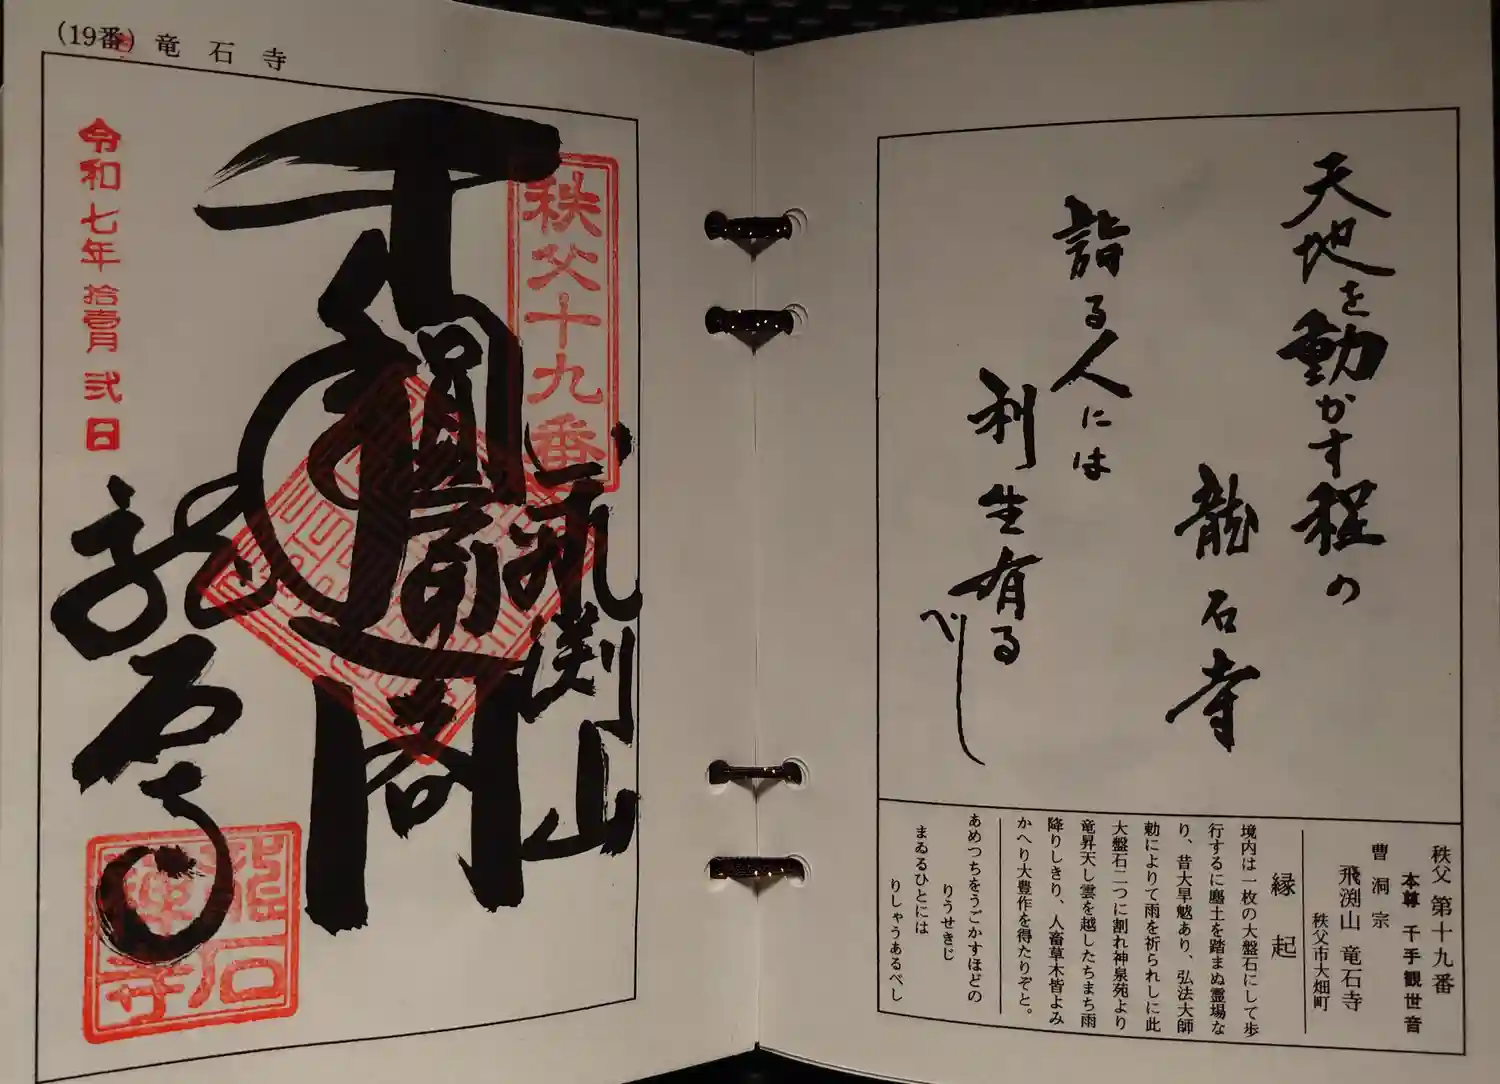 (19番) 竜石寺
令和七年拾壹月弐日
秩父十九番
飛渕山
千手観音
閣
龍石寺
天地を動かす程の
龍石寺
詣る人には
利生有るべし
秩父 第十九番
本尊 千手観世音
曹洞宗
飛渕山 竜石寺
秩父市大畑町
縁起
境内は一枚の大盤石にして歩
行するに塵土を踏まぬ霊場な
り、昔大旱魃あり、弘法大師
勅によりて雨を祈られしに此
大盤石二つに割れ神泉苑より
竜昇天し雲を起したちまち雨
降りしきり、人畜草木皆よみ
かへり大豊作を得たりぞと。
あめつちをうごかすほどの
りうせきじ
まゐるひとには
りしゃうあるべし